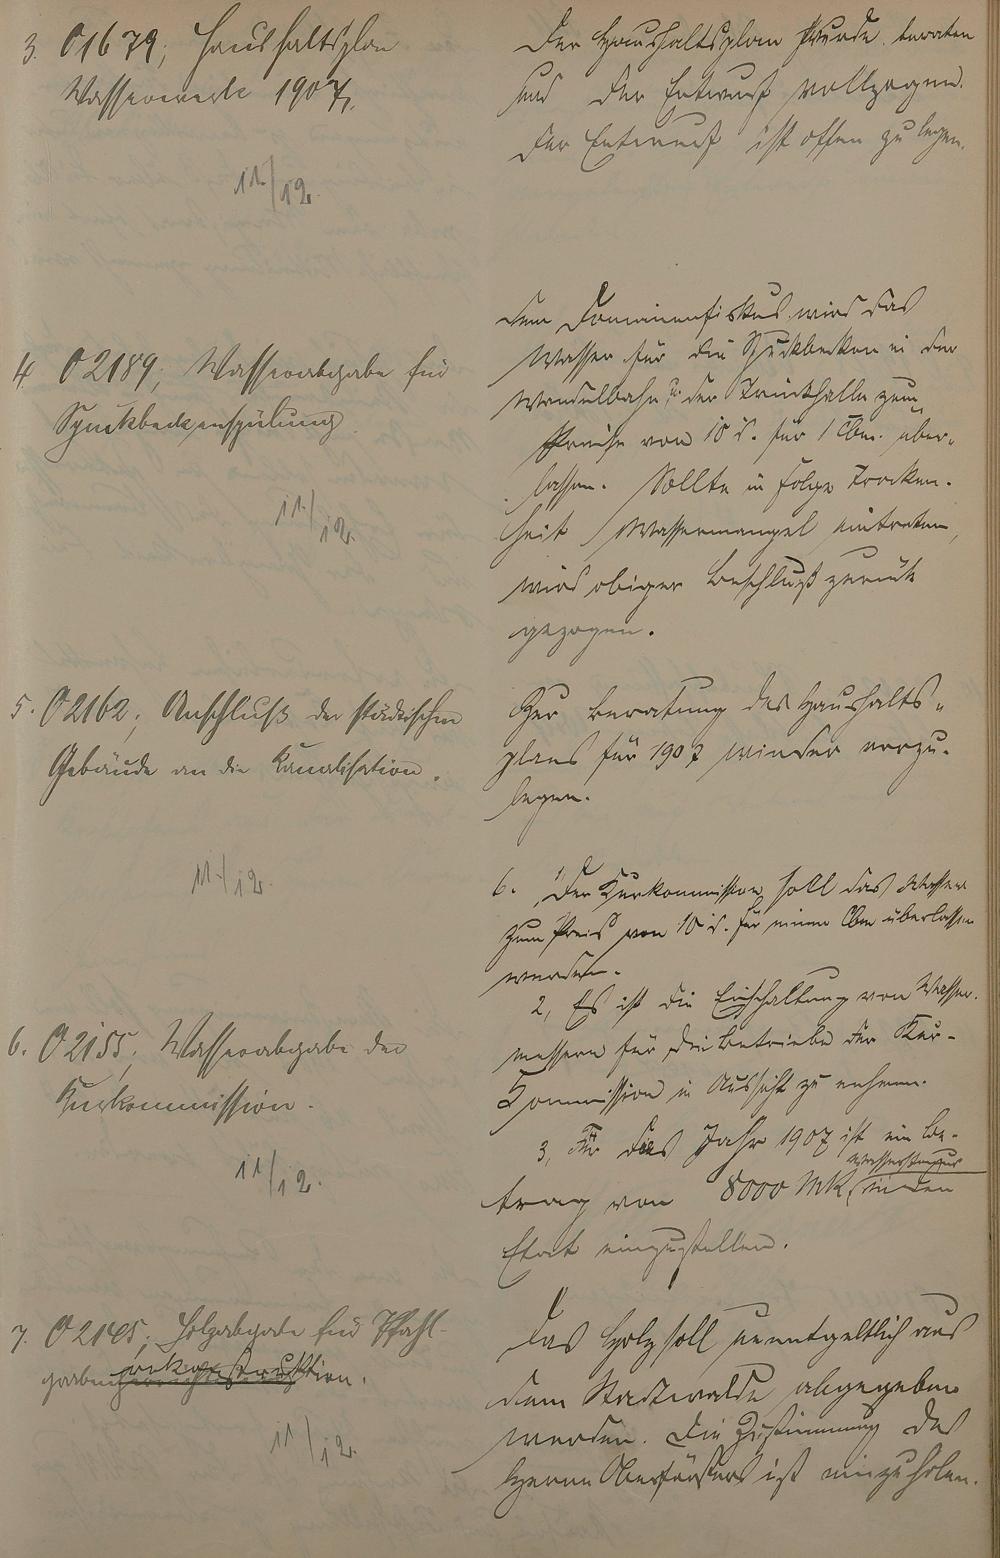 3. O 1679, Haushaltsplan
Wasserwerk 1907.
11./12.
Der Haushaltsplan wurde beraten
und der Entwurf vollzogen.
Der Entwurf ist offen zu legen.
4. O 2189, Wasserabgabe für
Spuckbeckenspülung.
11./12.
Dem Domänenfiskus wird das
Wasser für die Spuckbecken in der
Wandelbahn u. der Trinkhalle zum
Preise von 10 d. für 1 Cbm. über-
lassen. Sollte in Folge Trocken-
heit Wassermangel eintreten,
wird obiger Beschluß zurück
gezogen.
5. O 2162, Anschluß der städtischen
Gebäude an die Kanalisation.
11./12.
Zur Beratung des Haushalts-
plans für 1907 wieder vorzu-
legen.
6. O 2155, Wasserabgabe der
Kurkommission.
11/12.
6. 1, Der Kurkommission soll das Wasser
zum Preis von 10 d. für einen Cbm überlassen
werden.
2, Es ist die Einschaltung von Wasser-
messern für die Betriebe der Kur-
Kommission in Aussicht zu nehmen.
3, Für das Jahr 1907 ist ein Be-
trag von 8000 Mk. in den
Etat einzustellen.
7. O 2145, Holzabgabe für Pfahl-
graben
11/12.
Das Holz soll unentgeltlich aus
dem Stadtwalde abgegeben
werden. Die Zustimmung des
Herrn Oberförsters ist einzuholen.